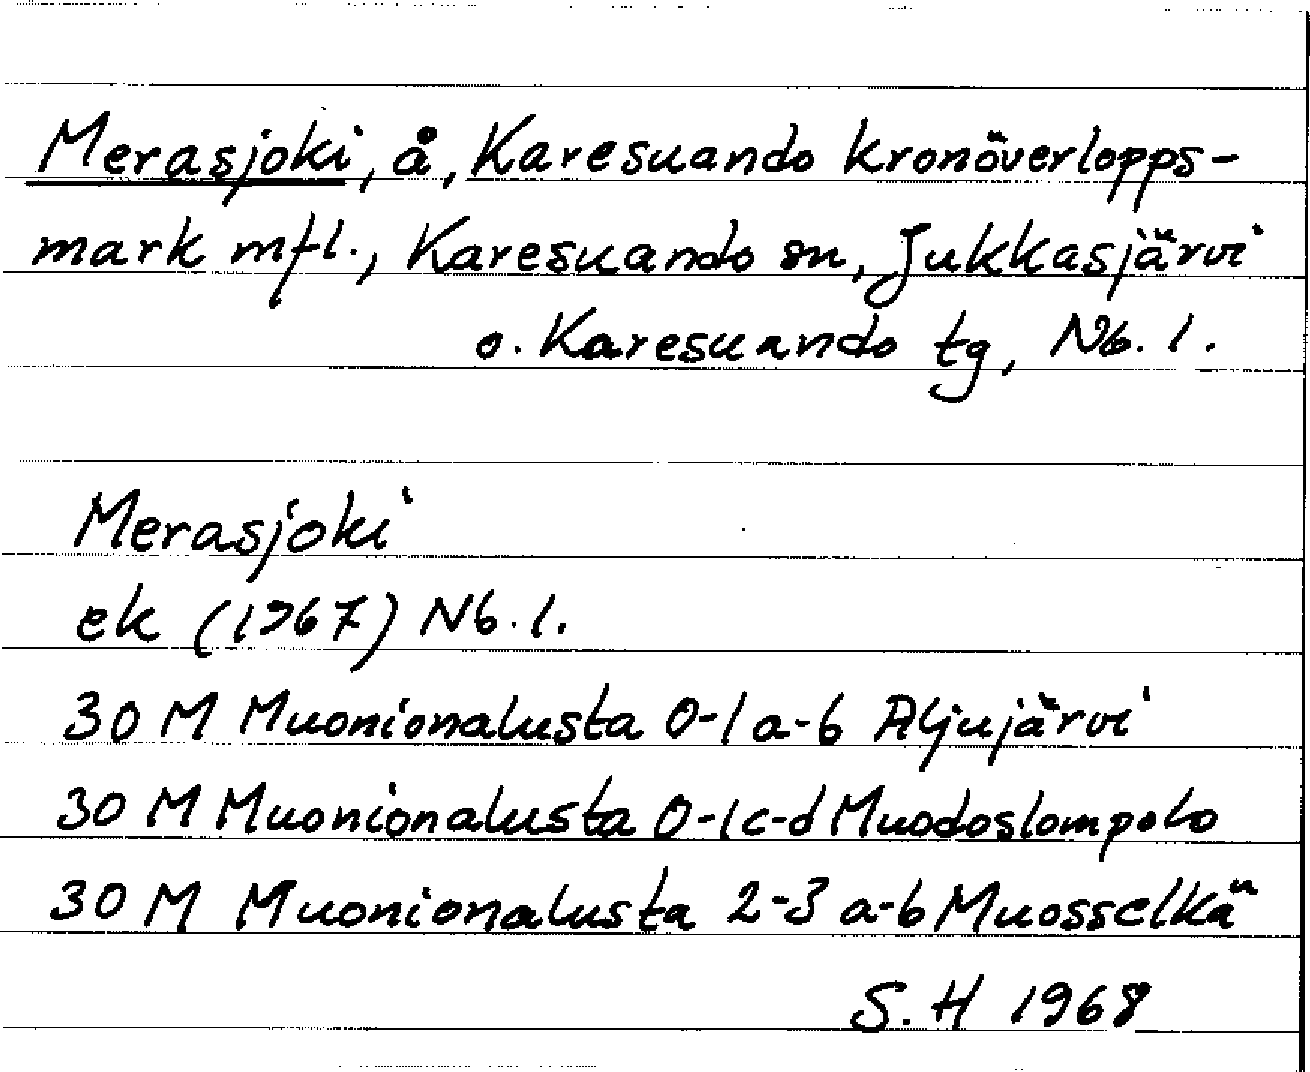 Merasjoki, å, Karesuando kronöverlopps-
mark mfl., Karesuando sn, Jukkasjärvi
o. Karesuando tg, Nb. l.
Merasjoki
ek (1967) Nb. l.
30 M Muonionalusta 0-1 a-b Äljujärvi
30 M Muonionalusta 0-1 c-d Muodoslompolo
30 M Muonionalusta 2-3 a-b Muosselkä
S. H 1968